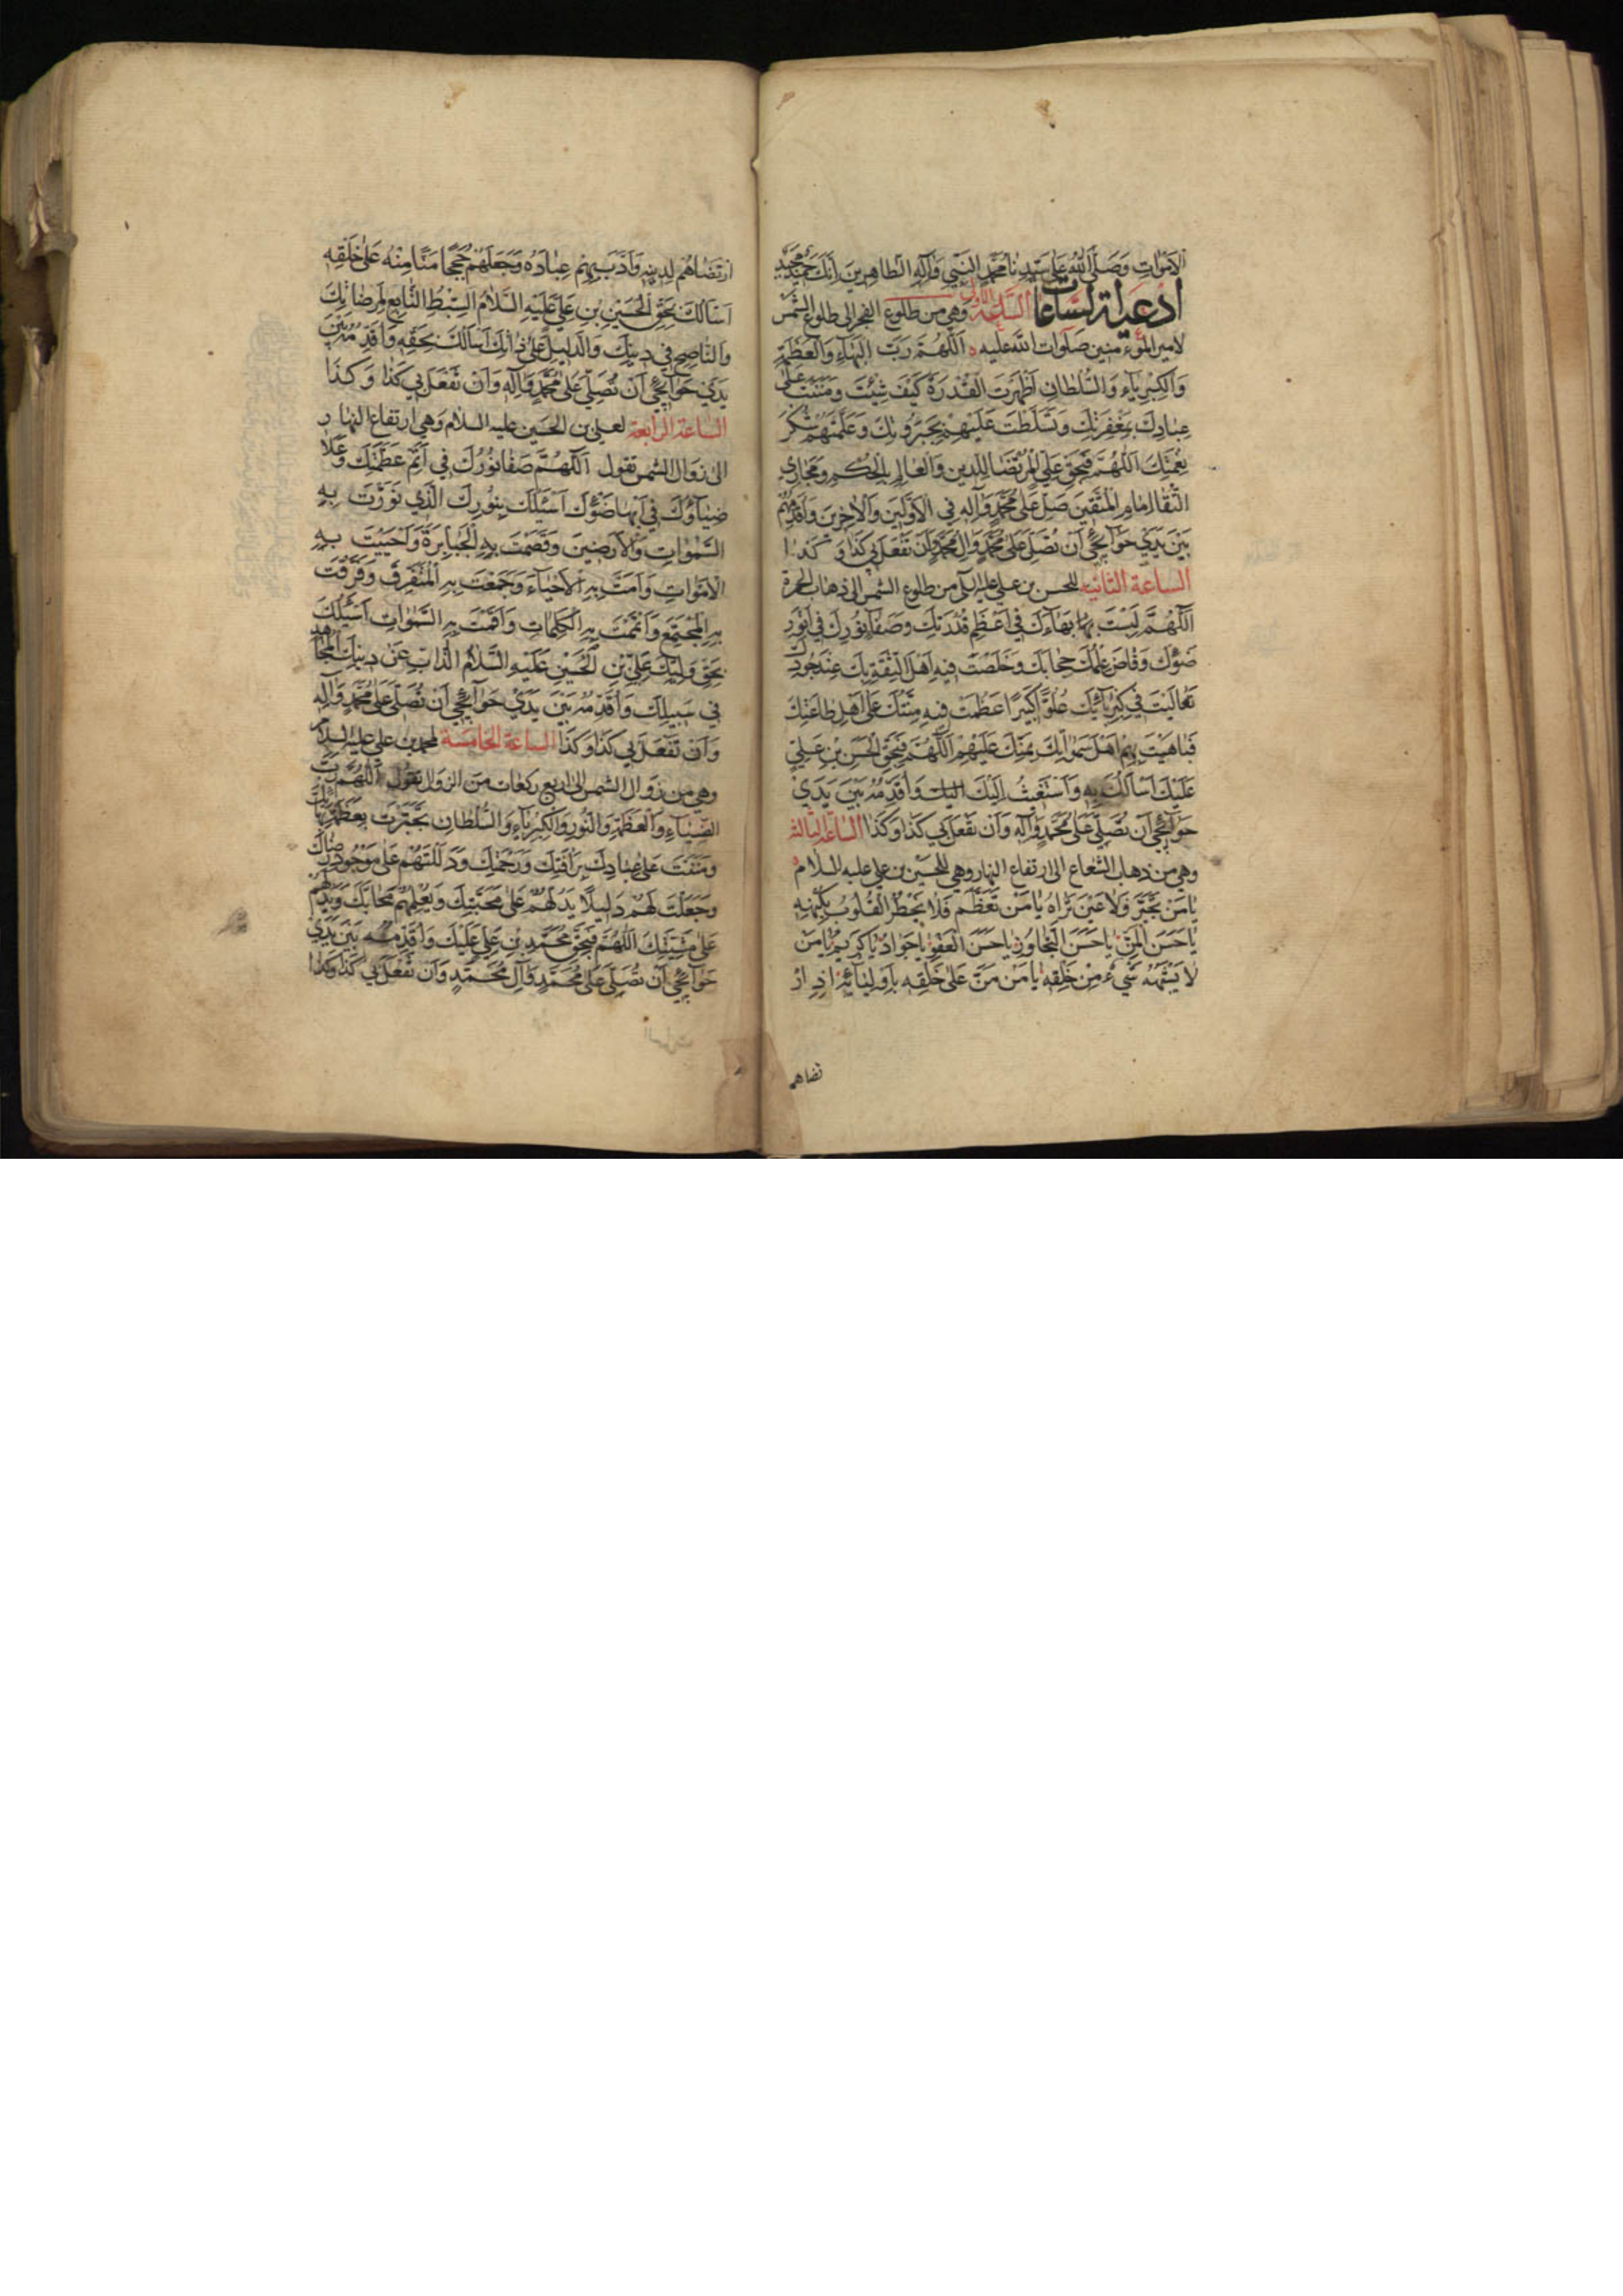 الاَمْوٰاتِ وَصَلَّى اللّٰهُ عَلىٰ سَيِّدِنٰا مُحَمَّدٍ النَّبِيِّ وَاٰلِهِ الطّٰاهِرينَ اِنَّكَ حَميدٌ مَجيدٌ
ادعية الساعات الساعة الاولى وهي من طلوع الفجر الى طلوع الشمس
لامير المؤمنين صلوات الله عليه اَللّٰهُمَّ رَبَّ الْبَهٰاءِ وَالْعَظَمَةِ
وَالْكِبْرِيٰاءِ وَالسُّلْطٰانِ اَظْهَرْتَ الْقُدْرَةَ كَيْفَ شِئْتَ وَمَنَنْتَ عَلىٰ
عِبٰادِكَ بِمَغْفِرَتِكَ وَتَسَلَّطْتَ عَلَيْهِمْ بِجَبَرُوتِكَ وَعَلَّمْتَهُمْ شُكْرَ
نِعْمَتِكَ اَللّٰهُمَّ فَبِحَقِّ عَلِيٍّ الْمُرْتَضٰا لِلدّينِ وَالْعٰالِمِ بِالْحُكْمِ وَمَجٰارِي
التُّقٰا اِمٰامِ الْمُتَّقينَ صَلِّ عَلىٰ مُحَمَّدٍ وَاٰلِهِ فِي الاَوَّلينَ وَالاٰخِرينَ وَاُقَدِّمُهُ
بَيْنَ يَدَيْ حَوٰائِجي اَنْ تُصَلِّيَ عَلىٰ مُحَمَّدٍ وَاٰلِ مُحَمَّدٍ وَاَنْ تَفْعَلَ بي كَذٰا وَ كَذٰا
الساعة الثانية للحسن بن علي عليه السلام من طلوع الشمس الى ذهاب الحمرة
اَللّٰهُمَّ لَبِسْتَ بَهٰاءَكَ في اَعْظَمِ قُدْرَتِكَ وَصَفٰا نُورُكَ في اَنْوَرِ
ضَوْئِكَ وَفٰاضَ عِلْمُكَ حِجٰابَكَ وَخَلَّصْتَ فيهِ اَهْلَ الثِّقَةِ بِكَ عِنْدَ جُودِكَ
تَعٰالَيْتَ في كِبْرِيٰائِكَ عُلُوًّا كَبيرًا عَظُمَتْ فيهِ مِنَّتُكَ عَلىٰ اَهْلِ طٰاعَتِكَ
فَبٰاهَيْتَ بِهِمْ اَهْلَ سَمٰوٰاتِكَ بِمَنِّكَ عَلَيْهِمْ اَللّٰهُمَّ فَبِحَقِّ الْحَسَنِ بْنِ عَلِيٍّ
عَلَيْكَ اَسْاَلُكَ بِهِ وَاَسْتَغيثُ اِلَيْكَ وَاُقَدِّمُهُ بَيْنَ يَدَيْ
حَوٰائِجي اَنْ تُصَلِّيَ عَلىٰ مُحَمَّدٍ وَاٰلِهِ وَاَنْ تَفْعَلَ بي كَذٰا وَكَذٰا الساعة الثالثة
وهي من ذهاب الشعاع الى ارتفاع النهار وهي للحسين بن علي عليه السلام
يٰا مَنْ تَجَبَّرَ فَلاٰ عَيْنَ تَرٰاهُ يٰا مَنْ تَعَظَّمَ فَلاٰ تَخْطُرُ الْقُلُوبُ بِكُنْهِهِ
يٰا حَسَنَ الْمَنِّ يٰا حَسَنَ التَّجٰاوُزِ يٰا حَسَنَ الْعَفْوِ يٰا جَوٰادُ يٰا كَريمُ يٰا مَنْ
لاٰ يُشْبِهُهُ شَيْءٌ مِنْ خَلْقِهِ يٰا مَنْ مَنَّ عَلىٰ خَلْقِهِ بِاَوْلِيٰائِهِ اِذِ ارْ
تضاهم
ارْتَضٰاهُمْ لِدينِهِ وَاَدَّبَ بِهِمْ عِبٰادَهُ وَجَعَلَهُمْ حُجَجًا مَنًّا مِنْهُ عَلىٰ خَلْقِهِ
اَسْاَلُكَ بِحَقِّ الْحُسَيْنِ بْنِ عَلِيٍّ عَلَيْهِ السَّلاٰمُ السِّبْطِ التّٰابِعِ لِمَرْضٰاتِكَ
وَالنّٰاصِحِ في دينِكَ وَالدَّليلِ عَلىٰ ذٰاتِكَ اَسْاَلُكَ بِحَقِّهِ وَاُقَدِّمُهُ بَيْنَ
يَدَيْ حَوٰائِجي اَنْ تُصَلِّيَ عَلىٰ مُحَمَّدٍ وَاٰلِهِ وَاَنْ تَفْعَلَ بي كَذٰا وَ كَذٰا
الساعة الرابعة لعلي بن الحسين عليه السلام وهي ارتفاع النهار
الى زوال الشمس تقول اَللّٰهُمَّ صَفٰا نُورُكَ في اَتَمِّ عَظَمَتِكَ وَعَلاٰ
ضِيٰاؤُكَ في اَبْهٰا ضَوْئِكَ اَسْئَلُكَ بِنُورِكَ الَّذي نَوَّرْتَ بِهِ
السَّمٰوٰاتِ وَالاَرَضينَ وَقَصَمْتَ بِهِ الْجَبٰابِرَةَ وَاَحْيَيْتَ بِهِ
الاَمْوٰاتِ وَاَمَتَّ بِهِ الاَحْيٰاءَ وَجَمَعْتَ بِهِ الْمُتَفَرِّقَ وَفَرَّقْتَ
بِهِ الْمُجْتَمِعَ وَاَتْمَمْتَ بِهِ الْكَلِمٰاتِ وَاَقَمْتَ بِهِ السَّمٰوٰاتِ اَسْئَلُكَ
بِحَقِّ وَلِيِّكَ عَلِيِّ بْنِ الْحُسَيْنِ عَلَيْهِ السَّلاٰمُ الذّٰابِّ عَنْ دينِكَ الْمُجٰاهِدِ
في سَبيلِكَ وَاُقَدِّمُهُ بَيْنَ يَدَيْ حَوٰائِجي اَنْ تُصَلِّيَ عَلىٰ مُحَمَّدٍ وَاٰلِهِ
وَاَنْ تَفْعَلَ بي كَذٰا وَكَذٰا الساعة الخامسة لمحمد بن علي عليه السلام
وهي من زوال الشمس الى اربع ركعات من الزوال تقول اَللّٰهُمَّ رَبَّ
الضِّيٰاءِ وَالْعَظَمَةِ وَالنُّورِ وَالْكِبْرِيٰاءِ وَالسُّلْطٰانِ تَجَبَّرْتَ بِعَظَمَةِ بَهٰائِكَ
وَمَنَنْتَ عَلىٰ عِبٰادِكَ بِرَاْفَتِكَ وَرَحْمَتِكَ وَدَلَلْتَهُمْ عَلىٰ مَوْجُودِ رِضٰاكَ
وَجَعَلْتَ لَهُمْ دَليلاً يَدُلُّهُمْ عَلىٰ مَحَبَّتِكَ وَيُعَلِّمُهُمْ مَحٰابَّكَ وَيَدُلُّهُمْ
عَلىٰ مَشِيَّتِكَ اَللّٰهُمَّ فَبِحَقِّ مُحَمَّدِ بْنِ عَلِيٍّ عَلَيْكَ وَاُقَدِّمُهُ بَيْنَ يَدَيْ
حَوٰائِجي اَنْ تُصَلِّيَ عَلىٰ مُحَمَّدٍ وَاٰلِ مُحَمَّدٍ وَاَنْ تَفْعَلَ بي كَذٰا وَكَذٰا